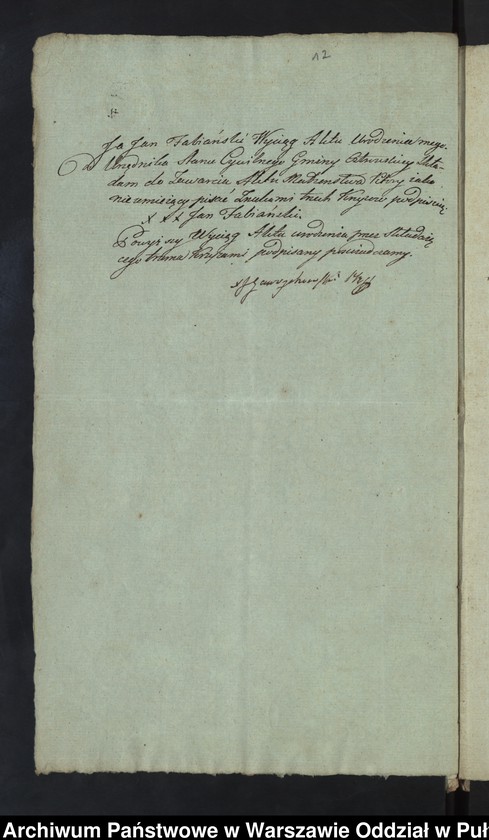 12
Ja Jan Fabiański Wyciąg Aktu Urodzenia mego
do Urzędnika Stanu Cywilnego Gminy skła-
dam do Zawarcia Aktu Małżeństwa Który iako
nieumieiący pisać Znakami trzech Krzyżow podpisuię
x x x Jan Fabiański.
Powyższy Wyciąg Aktu urodzenia przez Składaią-
cego trzema Krzyżami podpisany poświadczamy.
Archiwum Państwowe w Warszawie Oddział w Puł